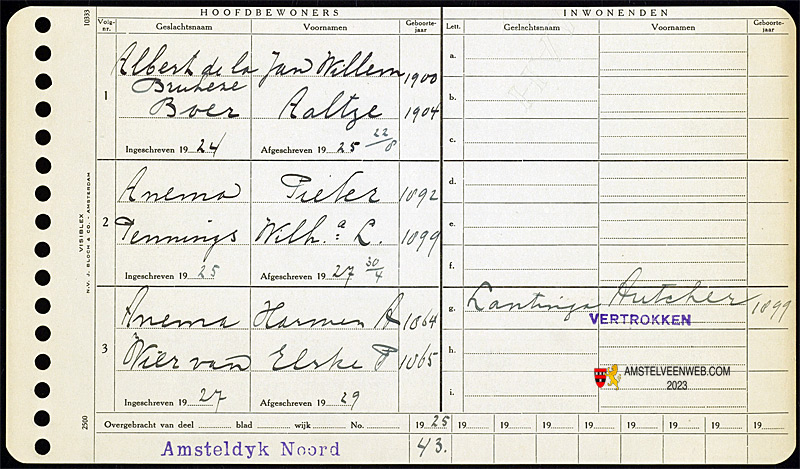 HOOFDBEWONERS
Volg-nr. Geslachtsnaam Voornamen Geboorte-jaar
1 Albert de la Jan Willem 1900
Bruheze
Boer Aaltze 1904
Ingeschreven 19 24 Afgeschreven 19 25 22/8
2 Anema Pieter 1892
Pennings Wilh.a L. 1899
Ingeschreven 19 25 Afgeschreven 19 27 30/4
3 Anema Harmen A 1864
Wier van Elske P 1865
Ingeschreven 19 27 Afgeschreven 19 29
INWONENDEN
Lett. Geslachtsnaam Voornamen Geboorte-jaar
a.
b.
c.
d.
e.
f.
g. Lantinga 1899
VERTROKKEN
h.
i.
AMSTELVEENWEB.COM
2023
Overgebracht van deel blad wijk No. 19 25 19 19 19 19 19 19 19 19
Amsteldyk Noord 43.
10333
VISIBLEX
N.V. J. BLOCH & CO. - AMSTERDAM
2500